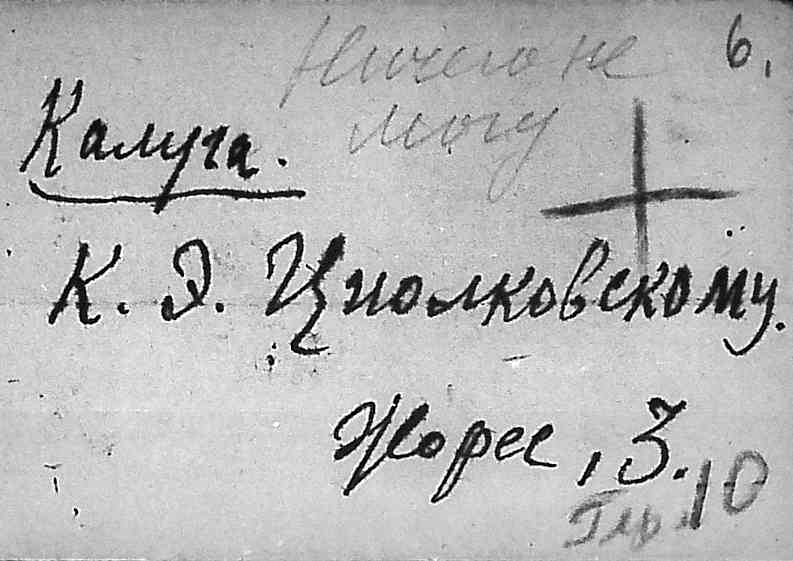 Ничего не 6.
могу
Калуга.
К. Э. Циолковскому.
Жорес, 3.
10